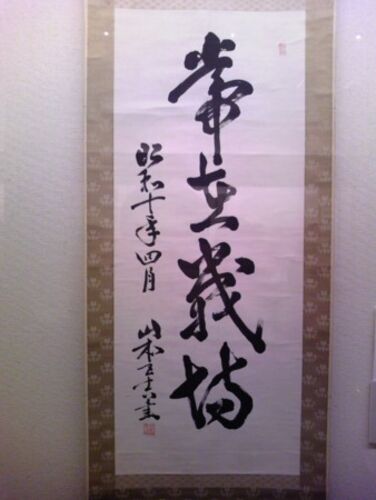 常在戰場
昭和十年四月
山本五十六書